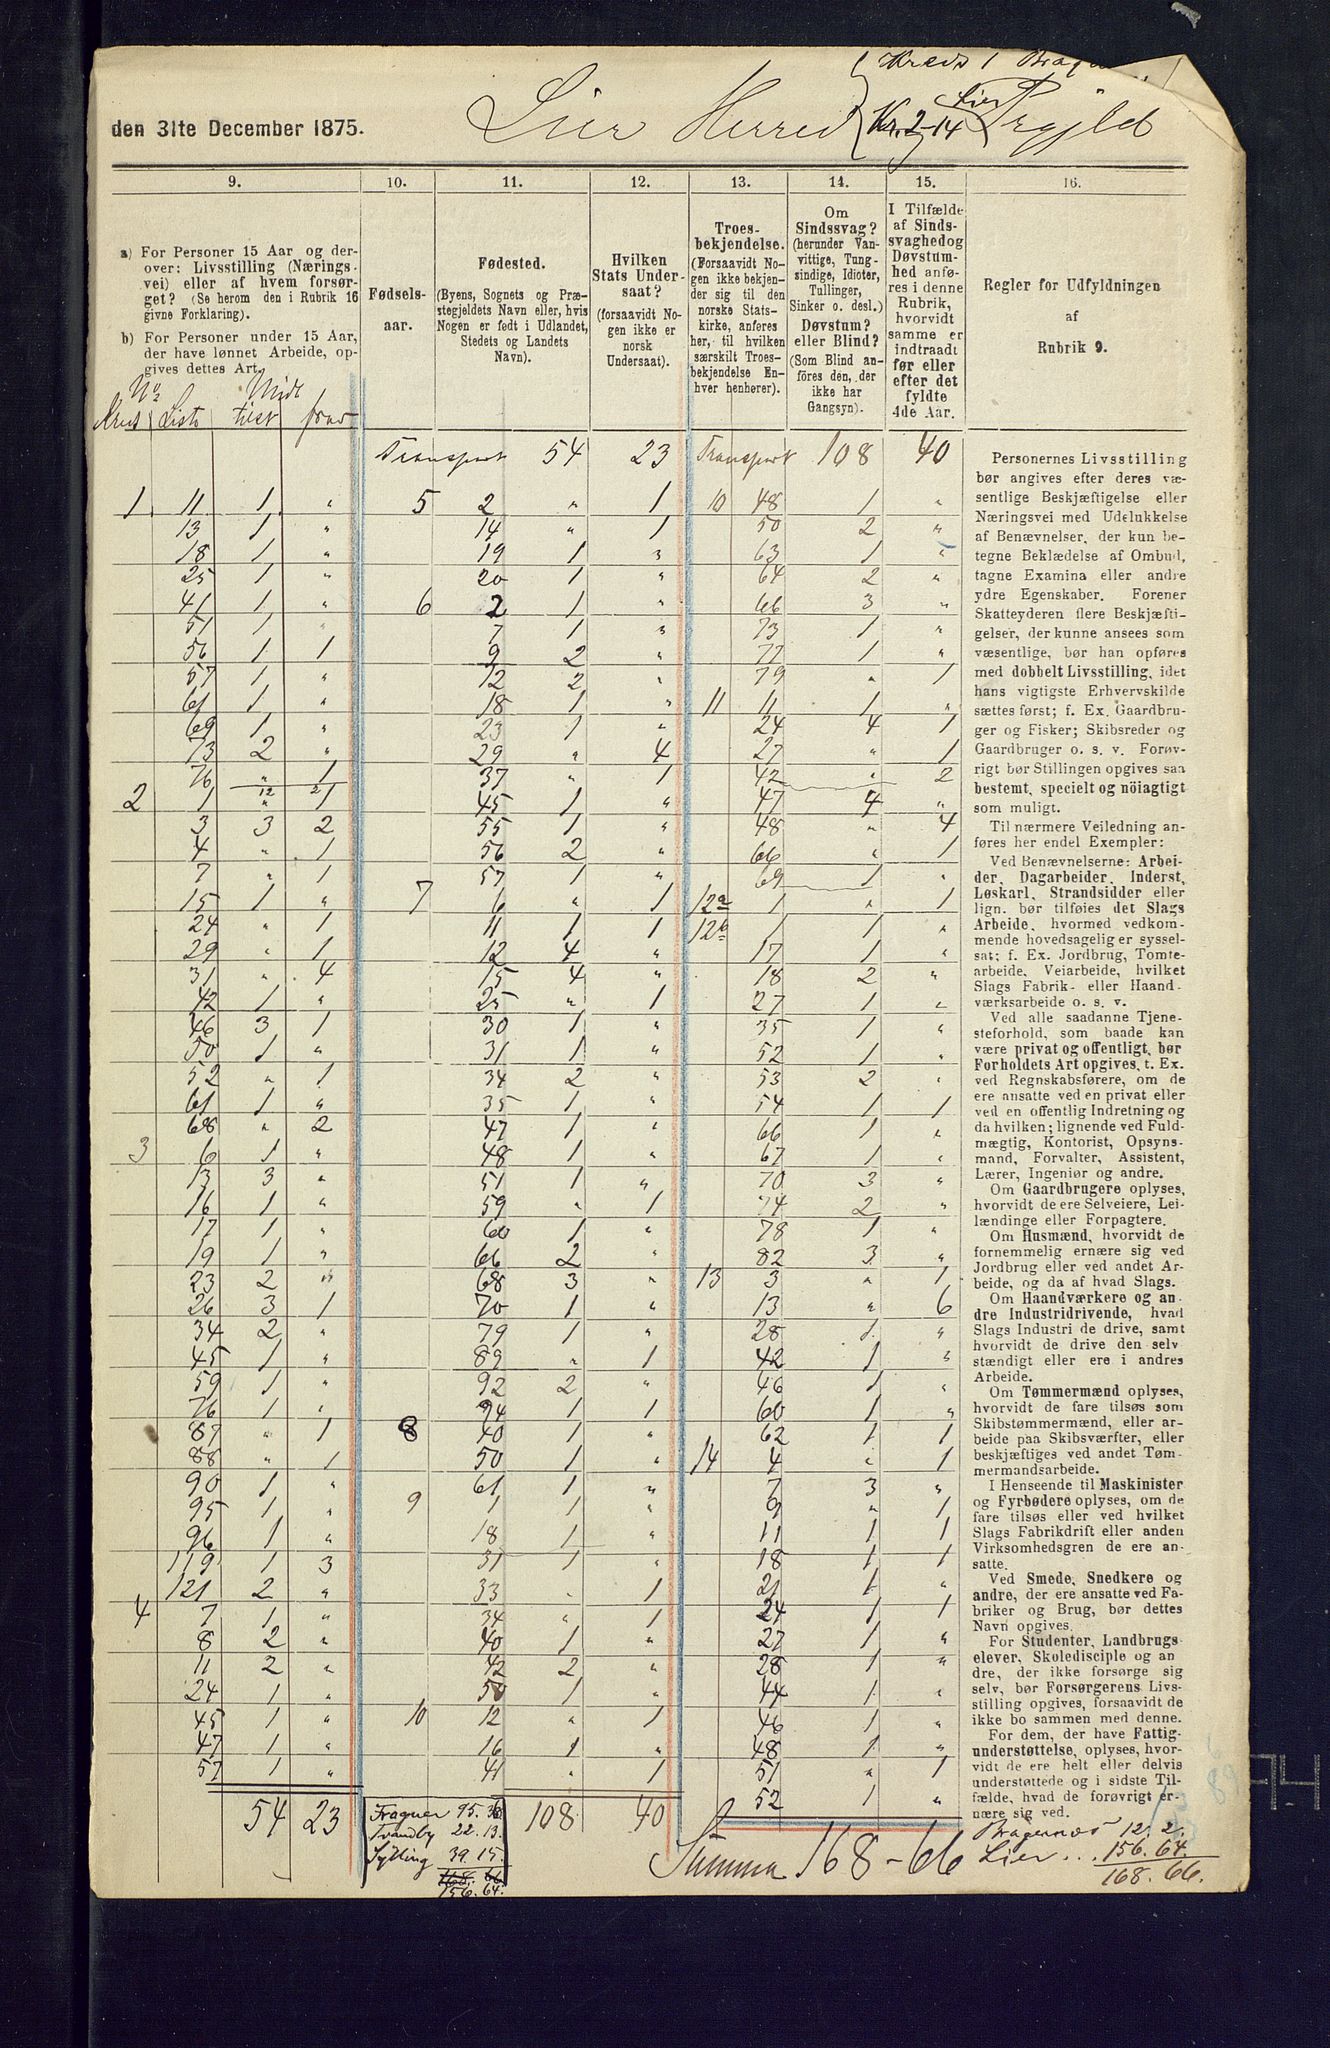 Kreds 1
Lier Herred Kr. 2-14 Lier Prgjeld
den 31te December 1875.
9. 10. 11. 12. 13. 14. 15. 16.
a) For Personer 15 Aar og der-
over: Livsstilling (Nærings-
vei) eller af hvem forsør-
get? (Se herom den i Rubrik 16
givne Forklaring).
b) For Personer under 15 Aar,
der have lønnet Arbeide, op-
gives dettes Art.
Fødsels-
aar.
Fødested.
(Byens, Sognets og Præ-
stegjeldets Navn eller, hvis
Nogen er født i Udlandet,
Stedets og Landets
Navn).
Hvilken
Stats Under-
saat?
(forsaavidt No-
gen ikke er
norsk
Undersaat).
Troes-
bekjendelse.
(Forsaavidt No-
gen ikke bekjen-
der sig til den
norske Stats-
kirke, anføres
her, til hvilken
særskilt Troes-
bekjendelse En-
hver henhører).
Om
Sindssvag?
(herunder Van-
vittige, Tung-
sindige, Idioter,
Tullinger,
Sinker o. desl.)
Døvstum?
eller Blind?
(Som Blind an-
föres den, der
ikke har
Gangsyn).
I Tilfælde
af Sinds-
svaghedog
Døvstum-
hed anfø-
res i denne
Rubrik,
hvorvidt
samme er
indtraadt
før eller
efter det
fyldte
4de Aar.
Regler for Udfyldningen
af
Rubrik 9.
No Midt
Kreds Liste tilst. frav.
Transport 54 23 Transport 108 40
1 11 1 " 5 2 " 1 10 48 1 "
13 1 " 14 " 1 50 2 "
18 1 " 19 1 " 63 1 "
25 1 " 20 1 " 64 2 "
41 1 " 6 2 1 " 66 3 "
51 1 " 7 1 " 73 1 "
56 1 1 9 2 " 77 1 "
57 1 " 12 2 " 79 " 1
61 1 " 18 1 " 11 11 1 "
69 1 " 23 1 " 24 4 1
73 2 " 29 " 4 27 " 1
76 " 1 37 " 1 42 " 2
12 2
2 1 " 1 45 1 " 47 4 "
3 3 2 55 1 " 48 " 4
4 " 1 56 2 " 66 " 1
7 " 1 57 1 " 69 1 "
15 1 " 7 6 " 1 12a 1 " 1
24 " 1 11 1 1 12b 1 1 "
29 " 1 12 4 " 17 1 "
31 " 4 15 4 " 18 2 "
42 1 " 25 " 1 27 1 "
46 3 1 30 1 " 35 1 "
50 1 " 31 1 " 52 1 "
52 " 1 34 2 " 53 2 "
61 1 " 35 1 " 54 1 1
68 " 2 47 1 " 66 1 "
3 6 1 " 48 1 " 67 1 "
13 3 " 51 1 " 70 3 "
16 1 " 59 " 1 74 2 "
17 1 " 60 1 " 78 1 "
19 1 " 66 2 " 82 3 "
23 2 " 68 3 " 13 3 " 1
26 3 1 70 1 " 13 " 6
34 2 " 79 1 " 28 1 "
45 1 " 89 " 1 42 1 "
59 1 " 92 2 " 46 1 "
76 1 " 94 1 1 60 1 "
87 " 1 8 40 1 " 62 1 1
88 " 1 50 1 " 14 4 " 1
90 1 " 61 1 " 7 3 "
95 1 " 9 1 1 " 9 " 1
96 1 " 18 1 " 11 1 1
119 1 3 31 1 " 18 1 1
121 2 " 33 " 1 21 1 "
4 7 1 " 34 " 1 24 1 1
8 2 " 40 1 " 27 1 "
11 2 " 42 2 " 28 1 "
24 1 " 50 1 " 44 1 "
45 1 " 10 12 " 1 46 1 "
47 1 " 16 1 " 48 1 "
57 1 " 41 " 1 51 " 1
52 1 "
54 23 108 40
Fragner 95. 36.
Tranby 22. 13.
Sylling 39. 15.
168. 66
156. 64.
Summa 168-66
Personernes Livsstilling
bør angives efter deres væ-
sentlige Beskjæftigelse eller
Næringsvei med Udelukkelse
af Benævnelser, der kun be-
tegne Beklædelse af Ombud,
tagne Examina eller andre
ydre Egenskaber. Forener
Skatteyderen flere Beskjæfti-
gelser, der kunne ansees som
væsentlige, bør han opføres
med dobbelt Livsstilling, idet
hans vigtigste Erhvervskilde
sættes først; f. Ex. Gaardbru-
ger og Fisker; Skibsreder og
Gaardbruger o. s. v. Forøv-
rigt bør Stillingen opgives saa
bestemt, specielt og nöiagtigt
som muligt.
Til nærmere Veiledning an-
føres her endel Exempler:
Ved Benævnelserne: Arbei-
der, Dagarbeider, Inderst,
Løskarl, Strandsidder eller
lign. bør tilføies det Slags
Arbeide, hvormed vedkom-
mende hovedsagelig er syssel-
sat; f. Ex. Jordbrug, Tomte-
arbeide, Veiarbeide, hvilket
Slags Fabrik- eller Haand-
værksarbeide o. s. v.
Ved alle saadanne Tjene-
steforhold, som baade kan
være privat og offentligt, bør
Forholdets Art opgives, t. Ex.
ved Regnskabsførere, om de
ere ansatte ved en privat eller
ved en offentlig Indretning og
da hvilken; lignende ved Fuld-
mægtig, Kontorist, Opsyns-
mand, Forvalter, Assistent,
Lærer, Ingeniør og andre.
Om Gaardbrugere oplyses,
hvorvidt de ere Selveiere, Lei-
lændinge eller Forpagtere.
Om Husmænd, hvorvidt de
fornemmelig ernære sig ved
Jordbrug eller ved andet Ar-
beide, og da af hvad Slags.
Om Haandværkere og an
dre Industridrivende, hvad
Slags Industri de drive, samt
hvorvidt de drive den selv
stændigt eller ere i andres
Arbeide.
Om Tømmermænd oplyses,
hvorvidt de fare tilsøs som
Skibstømmermænd, eller ar-
beide paa Skibsværfter, eller
beskjæftiges ved andet Tøm-
mermandsarbeide.
I Henseende til Maskinister
og Fyrbødere oplyses, om de
fare tilsøs eller ved hvilket
Slags Fabrikdrift eller anden
Virksomhedsgren de ere an-
satte.
Ved Smede, Snedkere og
andre, der ere ansatte ved Fa-
briker og Brug, bør dettes
Navn opgives.
For Studenter, Landbrugs
elever, Skoledisciple og an
dre, der ikke forsørge sig
selv, bør Forsørgerens Livs-
stilling opgives, forsaavidt de
ikke bo sammen med denne.
For dem, der have Fattig-
understøttelse, oplyses, hvor-
vidt de ere helt eller delvis
understøttede og i sidste Til-
fælde, hvad de forøvrigt er-
nære sig ved.
Bragernæs 12. 2.
Lier . . . 156. 64.
168. 66.